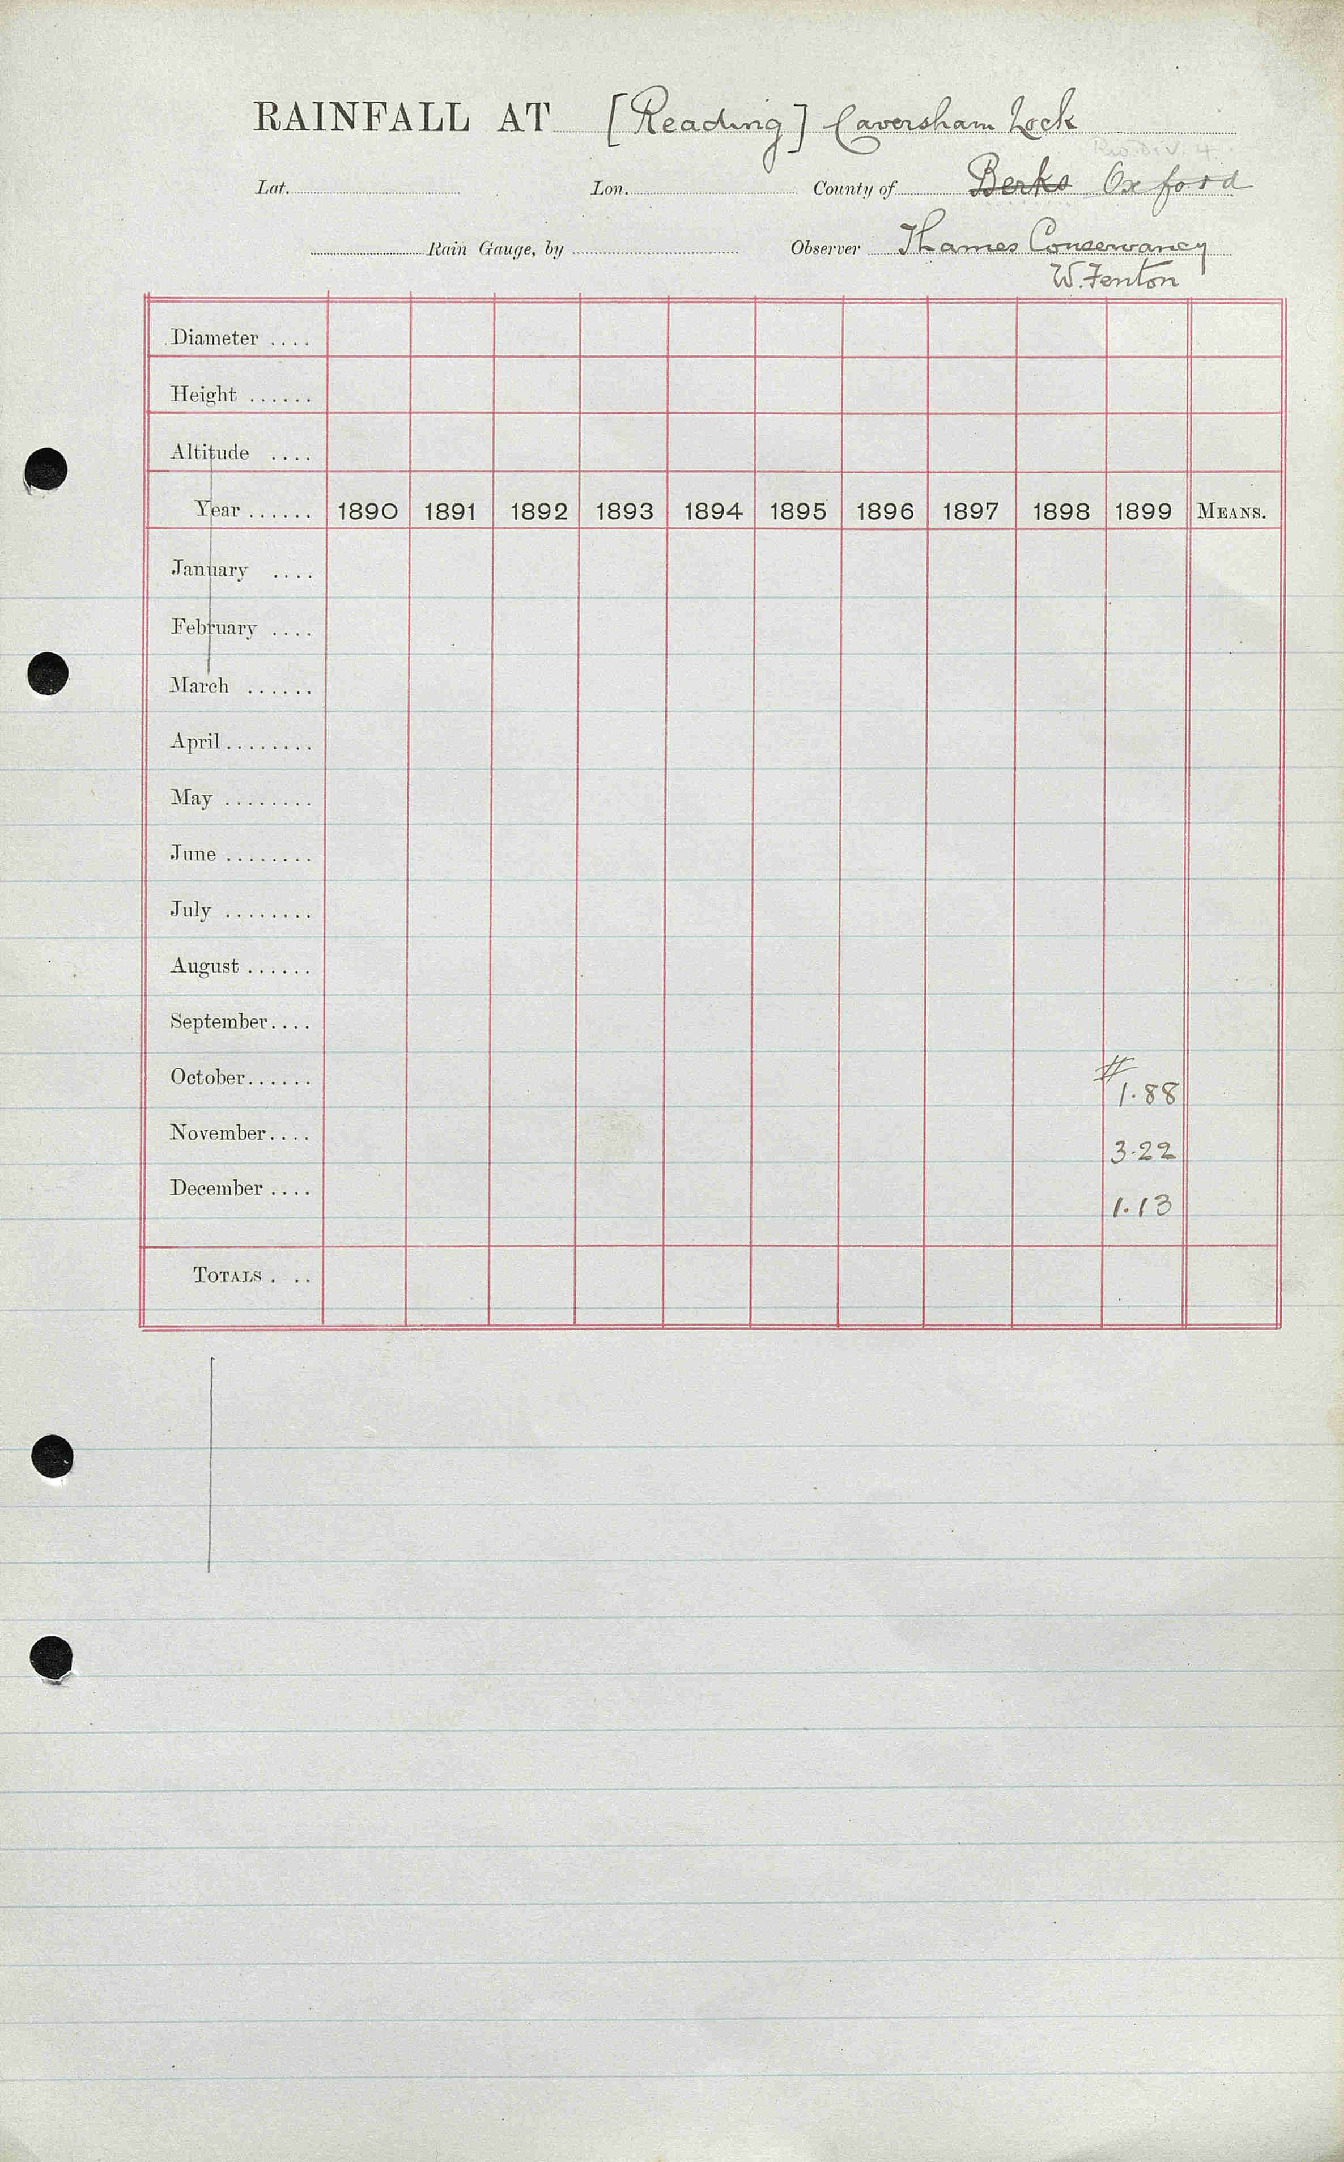 RAINFALL AT [Reading] Caversham Lock
Lat. Lon. County of Berks Oxford
Rain Gauge, by Observer Thames Conservancy
W. Fenton
Diameter ....
Height ......
Altitude ....
Year ...... 1890 1891 1892 1893 1894 1895 1896 1897 1898 1899 MEANS.
January ....
February ....
March ......
April ........
May ........
June ........
July ........
August ......
September....
October...... # 1.88
November.... 3.22
December .... 1.13
TOTALS . ..